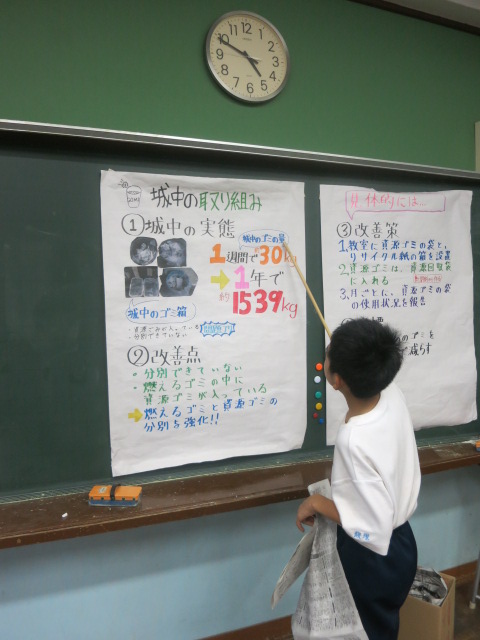 城中の取り組み
①城中の実態
城中のゴミの量
1週間で30kg
1年で
約1539kg
城中のゴミ箱
分別できていない
②改善点
・分別できていない
・燃えるゴミの中に
資源ゴミが入っている
燃えるゴミと資源ゴミの
分別を強化!!
具体的には…
③改善策
1,教室に資源ゴミの袋と、
リサイクル紙の箱を設置
2,資源ゴミは、資源回収袋
に入れる
3,月ごとに、資源ゴミの袋
の使用状況を報告
ゴミを
減らす
12
1
2
3
4
5
6
7
8
9
10
11